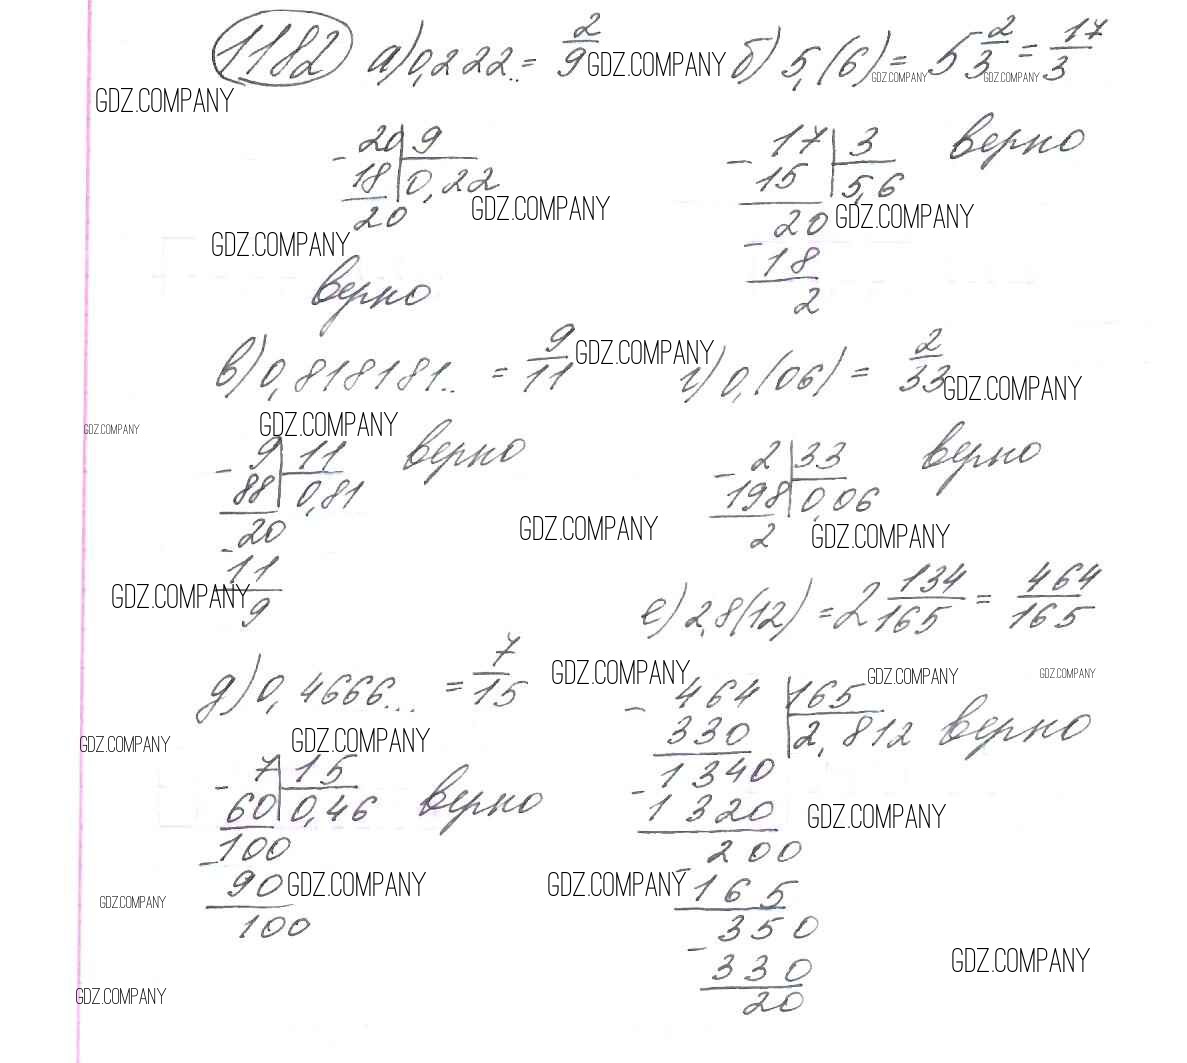 1182 а) 0,222.. = 2/9 GDZ.COMPANY б) 5,(6) = 5 2/3 = 17/3
GDZ.COMPANY GDZ.COMPANY
GDZ.COMPANY
- 20 | 9
18 | 0,22
20
GDZ.COMPANY
GDZ.COMPANY
верно
- 17 | 3 верно
15 | 5,6
20 GDZ.COMPANY
- 18
2
в) 0,818181.. = 9/11 GDZ.COMPANY г) 0,(06) = 2/33
GDZ.COMPANY
GDZ.COMPANY
GDZ.COMPANY
- 9 | 11 верно
88 | 0,81
- 20
11
GDZ.COMPANY
9
- 2 | 33 верно
198 | 0,06
2
GDZ.COMPANY
GDZ.COMPANY
д) 0,4666... = 7/15
е) 2,8(12) = 2 134/165 = 464/165
GDZ.COMPANY
GDZ.COMPANY
GDZ.COMPANY
GDZ.COMPANY
GDZ.COMPANY
- 7 | 15
60 | 0,46 верно
- 100
90 GDZ.COMPANY
100
GDZ.COMPANY
GDZ.COMPANY
- 464 | 165
330 | 2,812 верно
- 1340
1320 GDZ.COMPANY
- 200
GDZ.COMPANY
165
- 350
330
20
GDZ.COMPANY